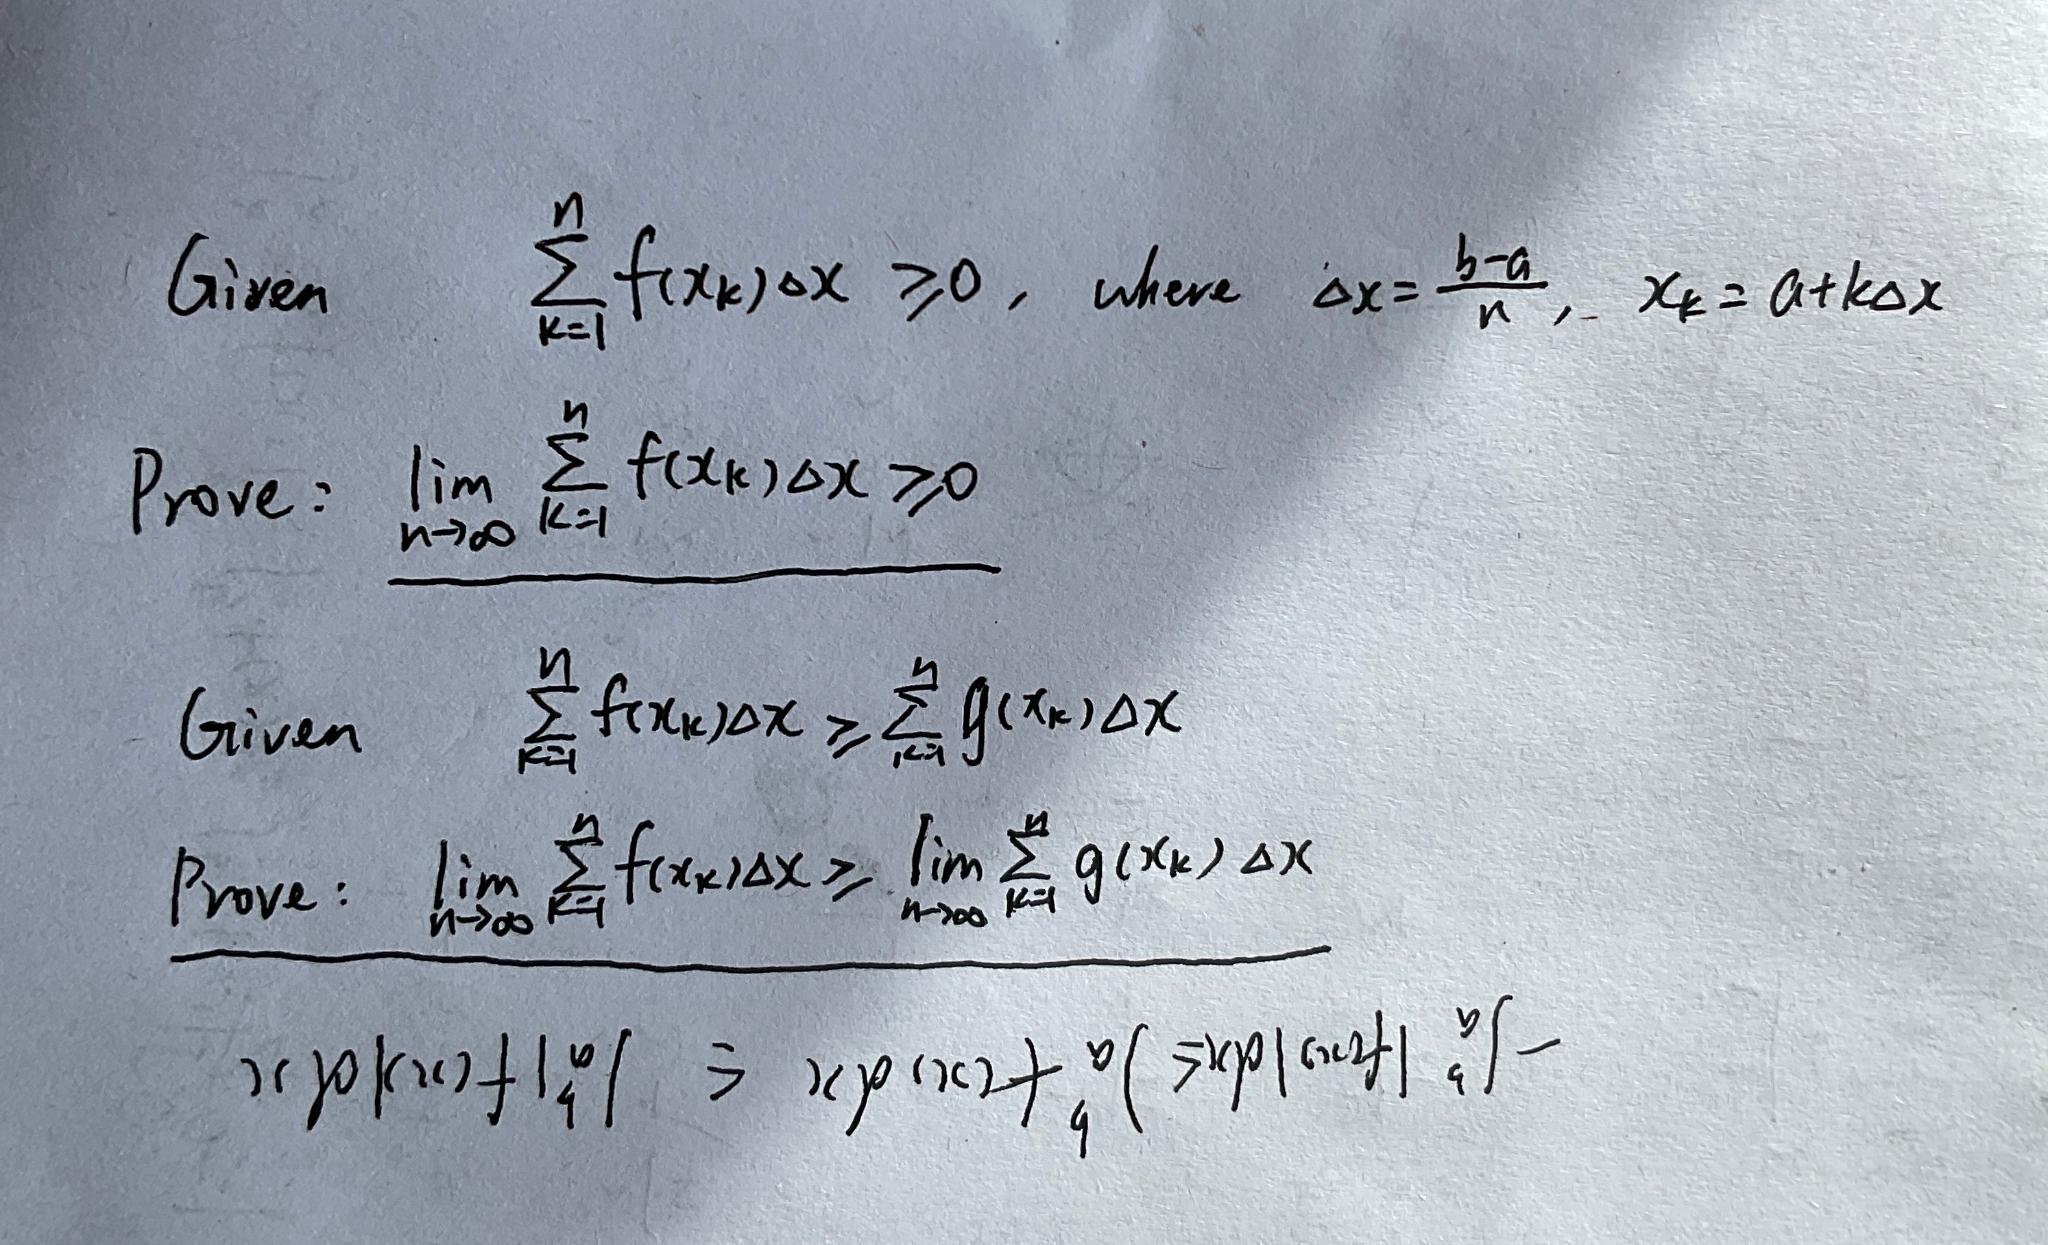 Given $\sum_{k=1}^{n} f(x_k) \Delta x \geqslant 0$, where $\Delta x = \frac{b-a}{n}$, $x_k = a + k \Delta x$
Prove: $\lim_{n \to \infty} \sum_{k=1}^{n} f(x_k) \Delta x \geqslant 0$
Given $\sum_{k=1}^{n} f(x_k) \Delta x \geqslant \sum_{k=1}^{n} g(x_k) \Delta x$
Prove: $\lim_{n \to \infty} \sum_{k=1}^{n} f(x_k) \Delta x \geqslant \lim_{n \to \infty} \sum_{k=1}^{n} g(x_k) \Delta x$
$-\int_a^b |f(x)| dx \leq \int_a^b f(x) dx \leq \int_a^b |f(x)| dx$